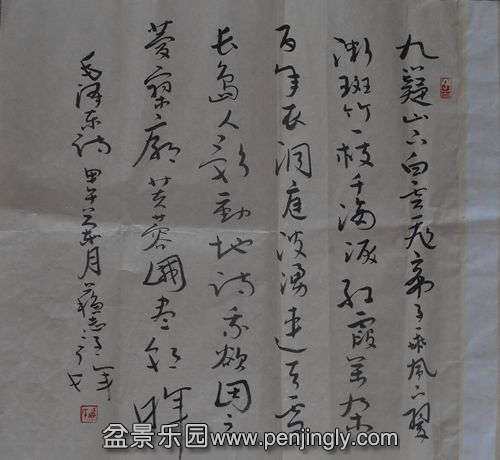 九疑山上白云飞帝子乘风下翠
微斑竹一枝千滴泪红霞万朵
百重衣洞庭波涌连天雪
长岛人歌动地诗我欲因之
梦寥廓芙蓉国尽朝晖
毛泽东诗 甲午 月 苏志
盆景乐园www.penjingly.com